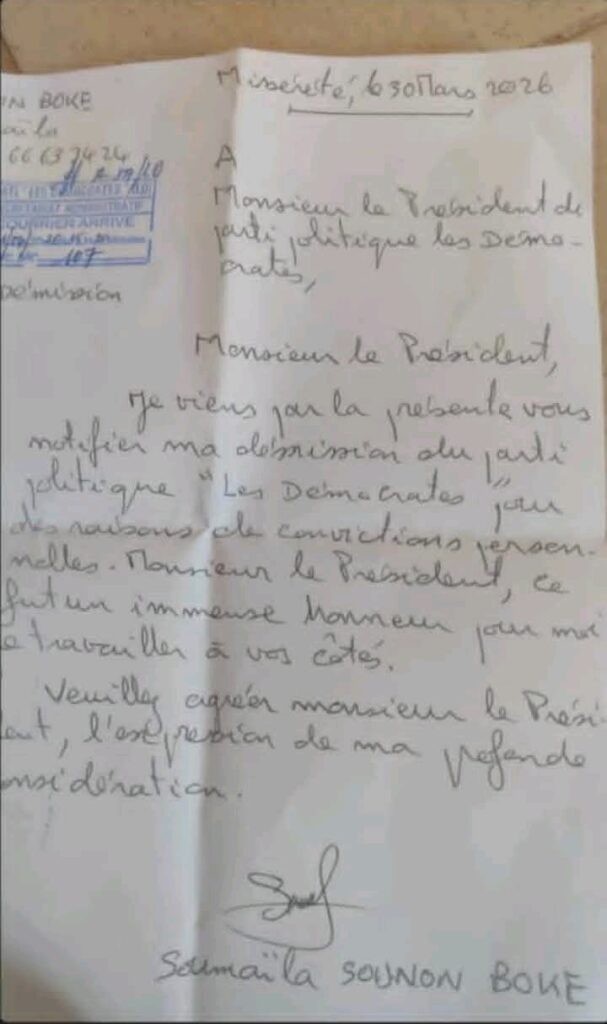 Missérété, le 30 Mars 2026
UN BOKE
aïla
66 63 74 24
SECRETARIAT ADMINISTRATIF
COURRIER ARRIVE
107
Démission
A
Monsieur le Président de
parti politique les Démo-
crates,
Monsieur le Président,
Je viens par la présente vous
notifier ma démission du parti
politique "Les Démocrates" pour
des raisons de convictions person-
nelles. Monsieur le Président, ce
fut un immense honneur pour moi
e travailler à vos côtés.
Veuillez agréer monsieur le Prési-
ent, l'expression de ma profonde
onsidération.
Soumaïla SOUNON BOKE